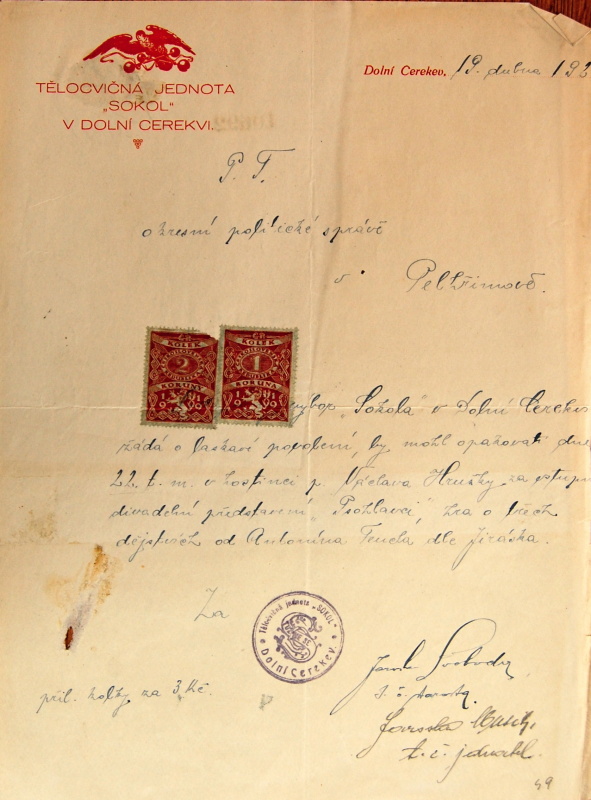 TĚLOCVIČNÁ JEDNOTA
„SOKOL“
V DOLNÍ CEREKVI.
Dolní Cerekev, 19. dubna 192
P. T.
okresní politické správě
v Pelhřimově.
KOLEK
2
KORUNY
KOLEK
1
KORUNA
výbor „Sokola“ v Dolní Cerekv
žádá o laskavé povolení, by mohl opakovati dne
22. t. m. v hostinci p. Václava Hrušky za vstupné
divadelní představení „Psohlavci“, hra o třech
dějstvách od Antonína Fencla dle Jiráska.
Za
Tělocvičná jednota „SOKOL“
Dolní Cerekev
Svoboda
t. č. starosta
příl. kolky za 3 Kč.
t. č. jednatel.
49